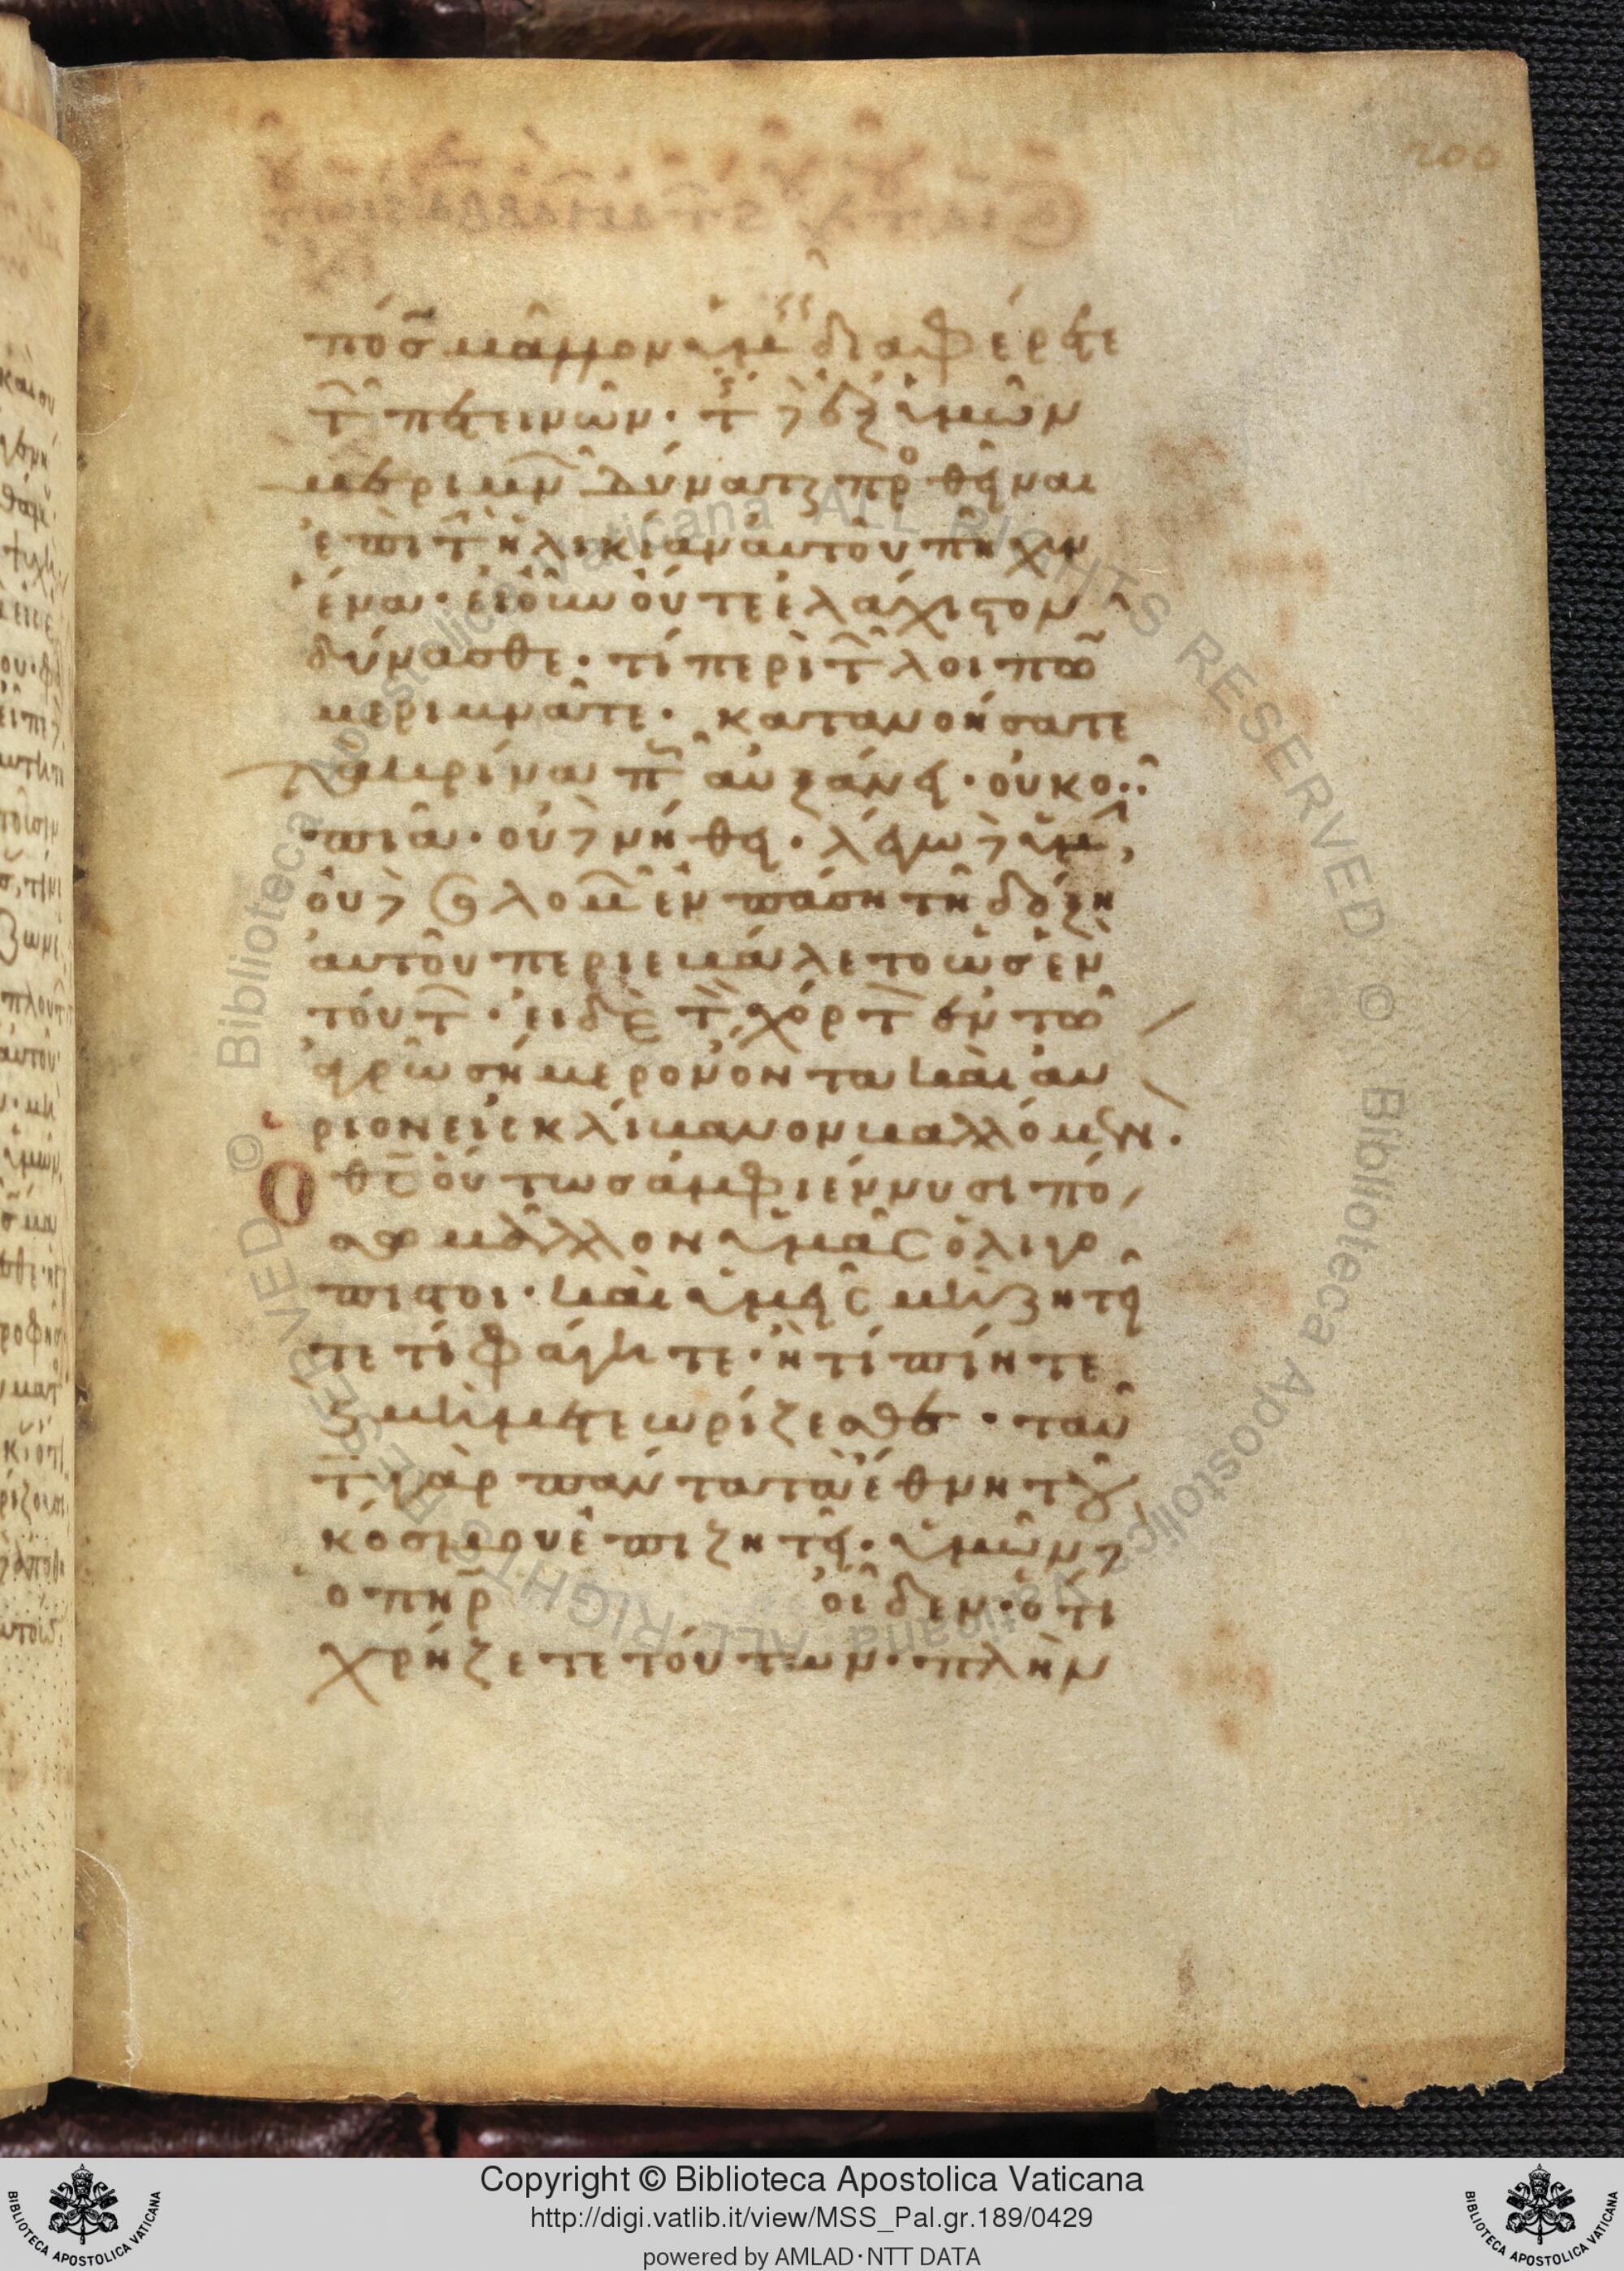 200
πόσ μᾶλλον ὑμεῖς διαφέρετε
τῶν πετεινῶν· τίς δὲ ἐξ ὑμῶν
μεριμνῶν δύναται προσθεῖναι
ἐπὶ τὴν ἡλικίαν αὐτοῦ πῆχυν
ἕνα· εἰ οὖν οὔτε ἐλάχιστον
δύνασθε· τί περὶ τῶν λοιπῶν
μεριμνᾶτε· κατανοήσατε
τὰ κρίνα πῶς αὐξάνει· οὐ κο
πιᾶ· οὐδὲ νήθει· λέγω δὲ ὑμῖν,
οὐδὲ σολομὼν ἐν πάση τῆ δόξη
αὐτοῦ περιεβάλετο ὡσ ἓν
τούτων· εἰ δὲ τὸν χόρτον ἐν τῶ
ἀγρῶ σήμερον ὄντα καὶ αὔ
ριον εἰς κλίβανον βαλλόμενον·
Ὁ θς οὕτωσ ἀμφιέννυσι πό
σω μᾶλλον ὑμᾶς ὀλιγό
πιστοι· καὶ ὑμεῖς μὴ ζητεῖ
τε τί φάγητε· ἢ τί πίητε
καὶ μὴ μετεωρίζεσθε· ταῦ
τα γὰρ πάντα τὰ ἔθνη τοῦ
κόσμου ἐπιζητεῖ· ὑμῶν δὲ
ὁ πηρ οἶδεν· ὅτι
χρήζετε τούτων· πλὴν
Copyright © Biblioteca Apostolica Vaticana
http://digi.vatlib.it/view/MSS_Pal.gr.189/0429
powered by AMLAD·NTT DATA